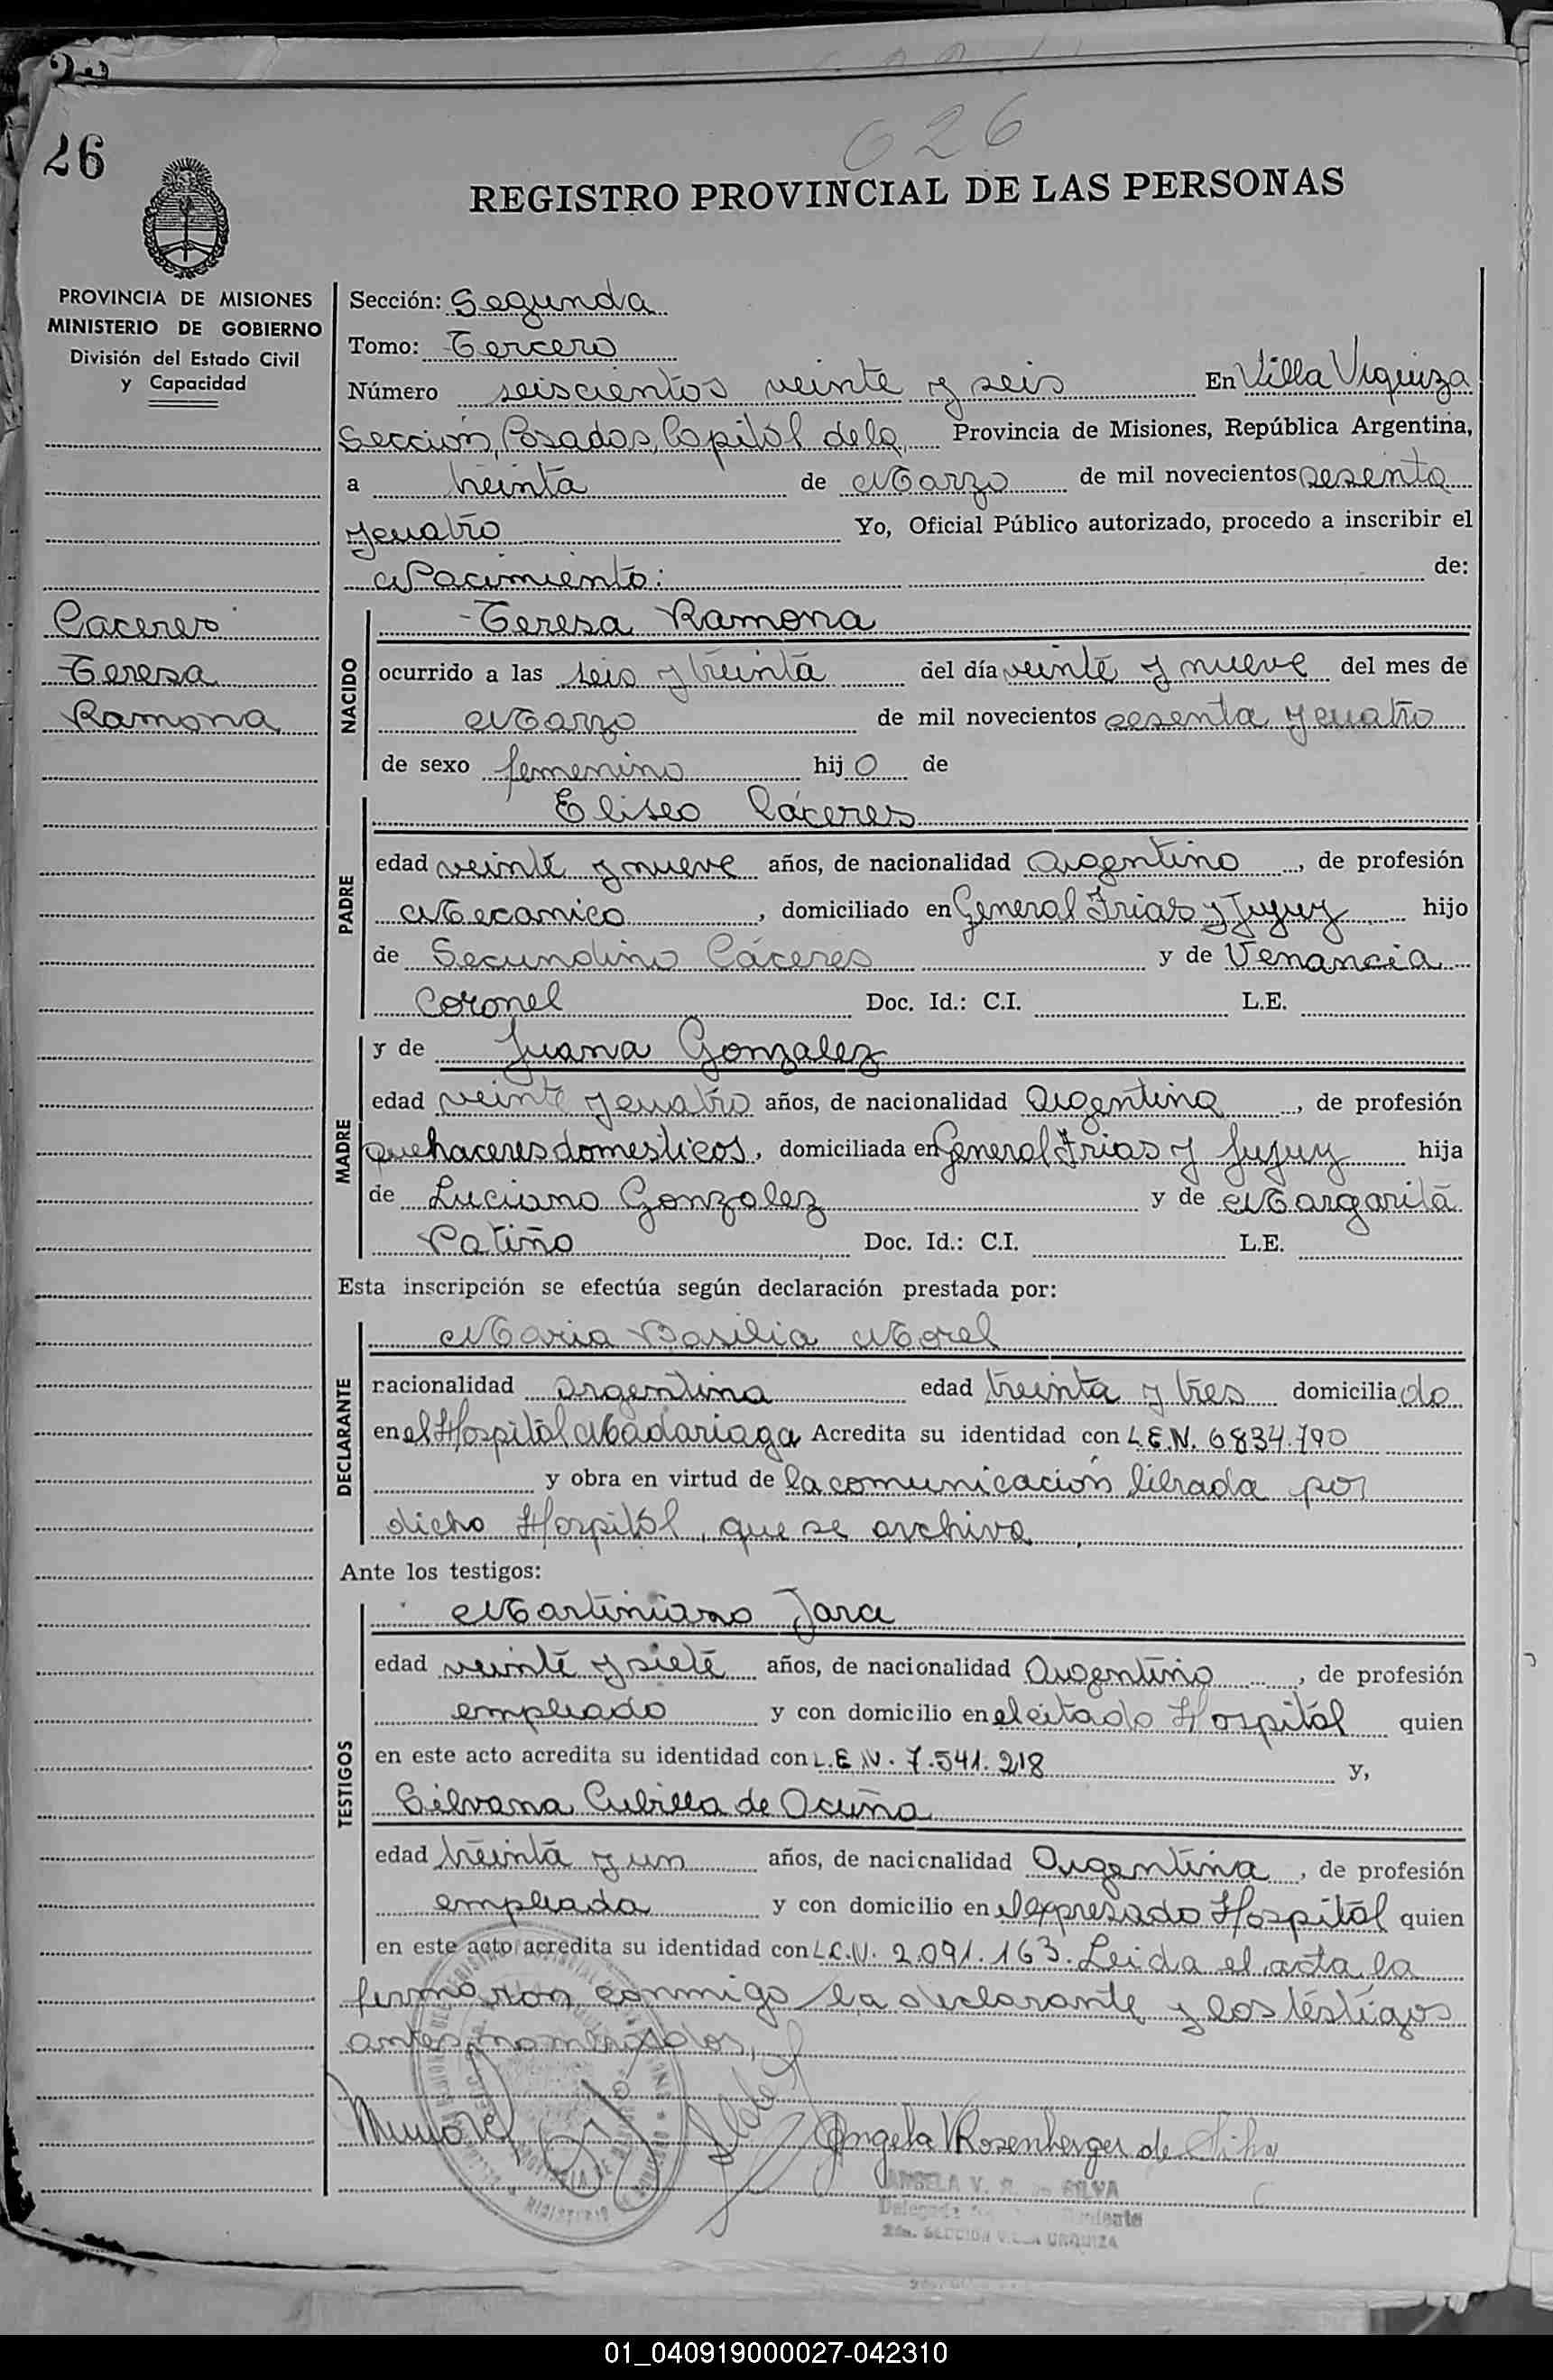 26
626
REGISTRO PROVINCIAL DE LAS PERSONAS
PROVINCIA DE MISIONES
MINISTERIO DE GOBIERNO
División del Estado Civil
y Capacidad
Caceres
Teresa
Ramona
Sección: Segunda
Tomo: Tercero
Número seiscientos veinte y seis En Villa Urquiza
Sección, Posadas, Capital de la Provincia de Misiones, República Argentina,
a treinta de Marzo de mil novecientos sesenta
y cuatro Yo, Oficial Público autorizado, procedo a inscribir el
Nacimiento: de:
NACIDO
Teresa Ramona
ocurrido a las seis y treinta del día veinte y nueve del mes de
Marzo de mil novecientos sesenta y cuatro
de sexo femenino hij a de
PADRE
Eliseo Cáceres
edad veinte y nueve años, de nacionalidad argentino, de profesión
Mecanico, domiciliado en General Frias y Jujuy hijo
de Secundino Cáceres y de Venancia
Coronel Doc. Id.: C.I. L.E.
MADRE
y de Juana Gonzalez
edad veinte y cuatro años, de nacionalidad Argentina, de profesión
quehaceres domesticos, domiciliada en General Frias y Jujuy hija
de Luciano Gonzalez y de Margarita
Patiño Doc. Id.: C.I. L.E.
Esta inscripción se efectúa según declaración prestada por:
DECLARANTE
Maria Basilia Morel
nacionalidad argentina edad treinta y tres domiciliada
en el Hospital Madariaga Acredita su identidad con L.E.N. 6834.790
y obra en virtud de la comunicación librada por
dicho Hospital, que se archiva
Ante los testigos:
TESTIGOS
Martiniano Jara
edad veinte y siete años, de nacionalidad Argentino, de profesión
empleado y con domicilio en el citado Hospital quien
en este acto acredita su identidad con L.E.N. 7.541.218 y,
Silvana Cubilla de Acuña
edad treinta y un años, de nacionalidad Argentina, de profesión
empleada y con domicilio en el expresado Hospital quien
en este acto acredita su identidad con L.C.N. 2.091.163. Leida el acta la
firmaron conmigo la declarante y los testigos
antes nombrados,
Angela V Rosenberger de Silva
ANGELA V. R. de SILVA
2da. SECCION VILLA URQUIZA
01_040919000027-042310